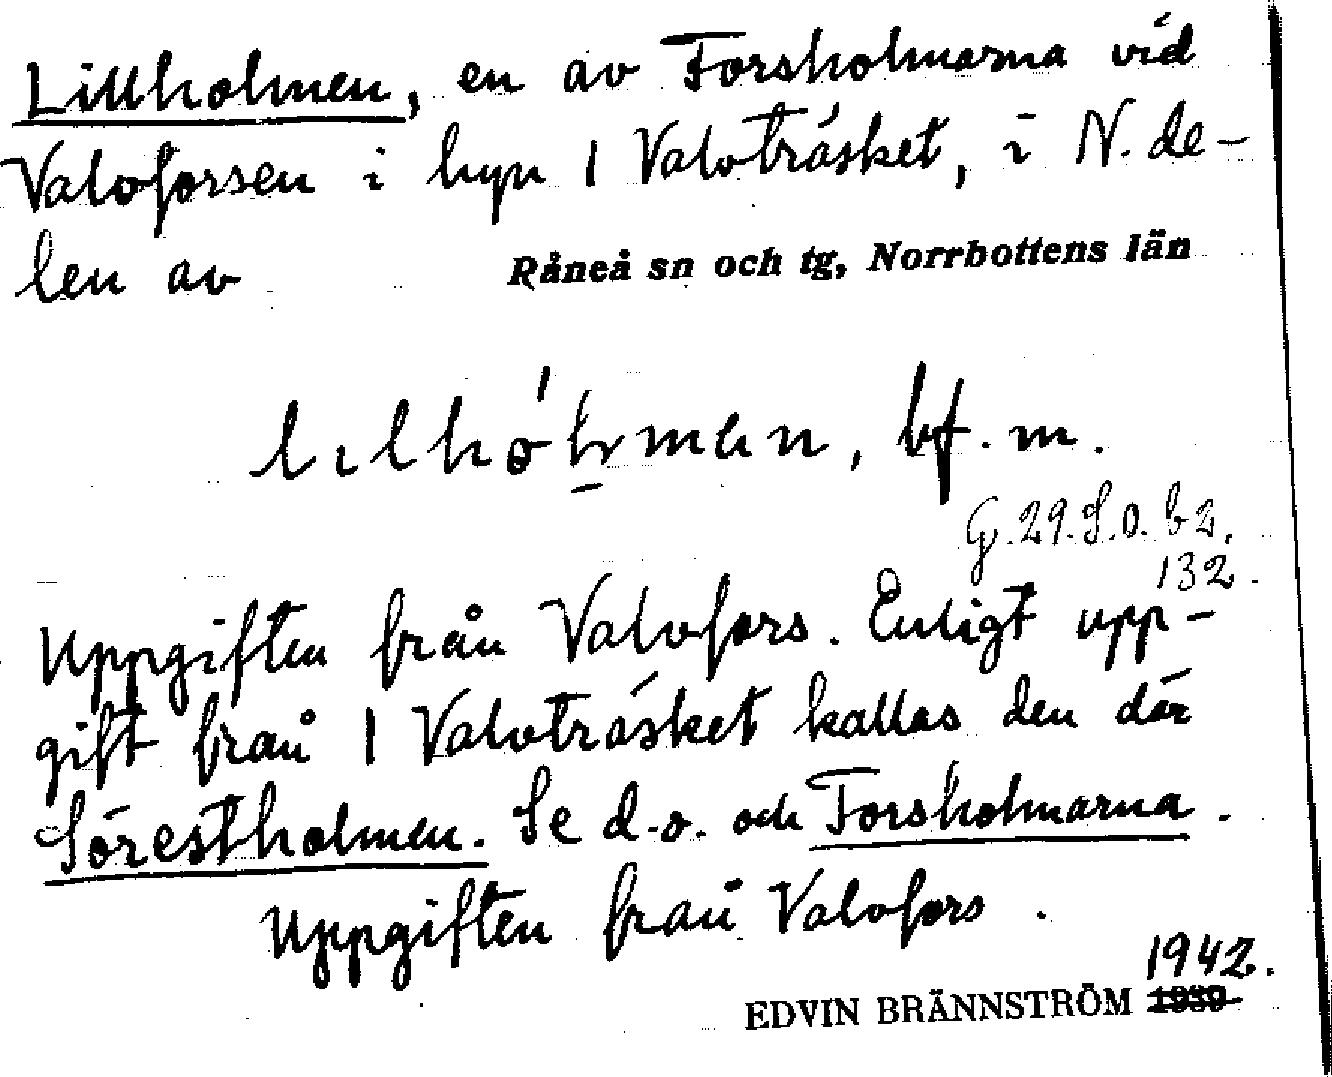 Lillholmen, en av Forsholmarna vid
Valvforsen i byn 1 Valvträsket, i N. de-
len av Råneå sn och tg, Norrbottens län
bf. m.
G. 29. S. O. b 2.
132.
Uppgiften från Valvfors. Enligt upp-
gift från 1 Valvträsket kallas den där
Sörestholmen. Se d. o. och Forsholmarna.
Uppgiften från Valvfors.
1942.
EDVIN BRÄNNSTRÖM 1939